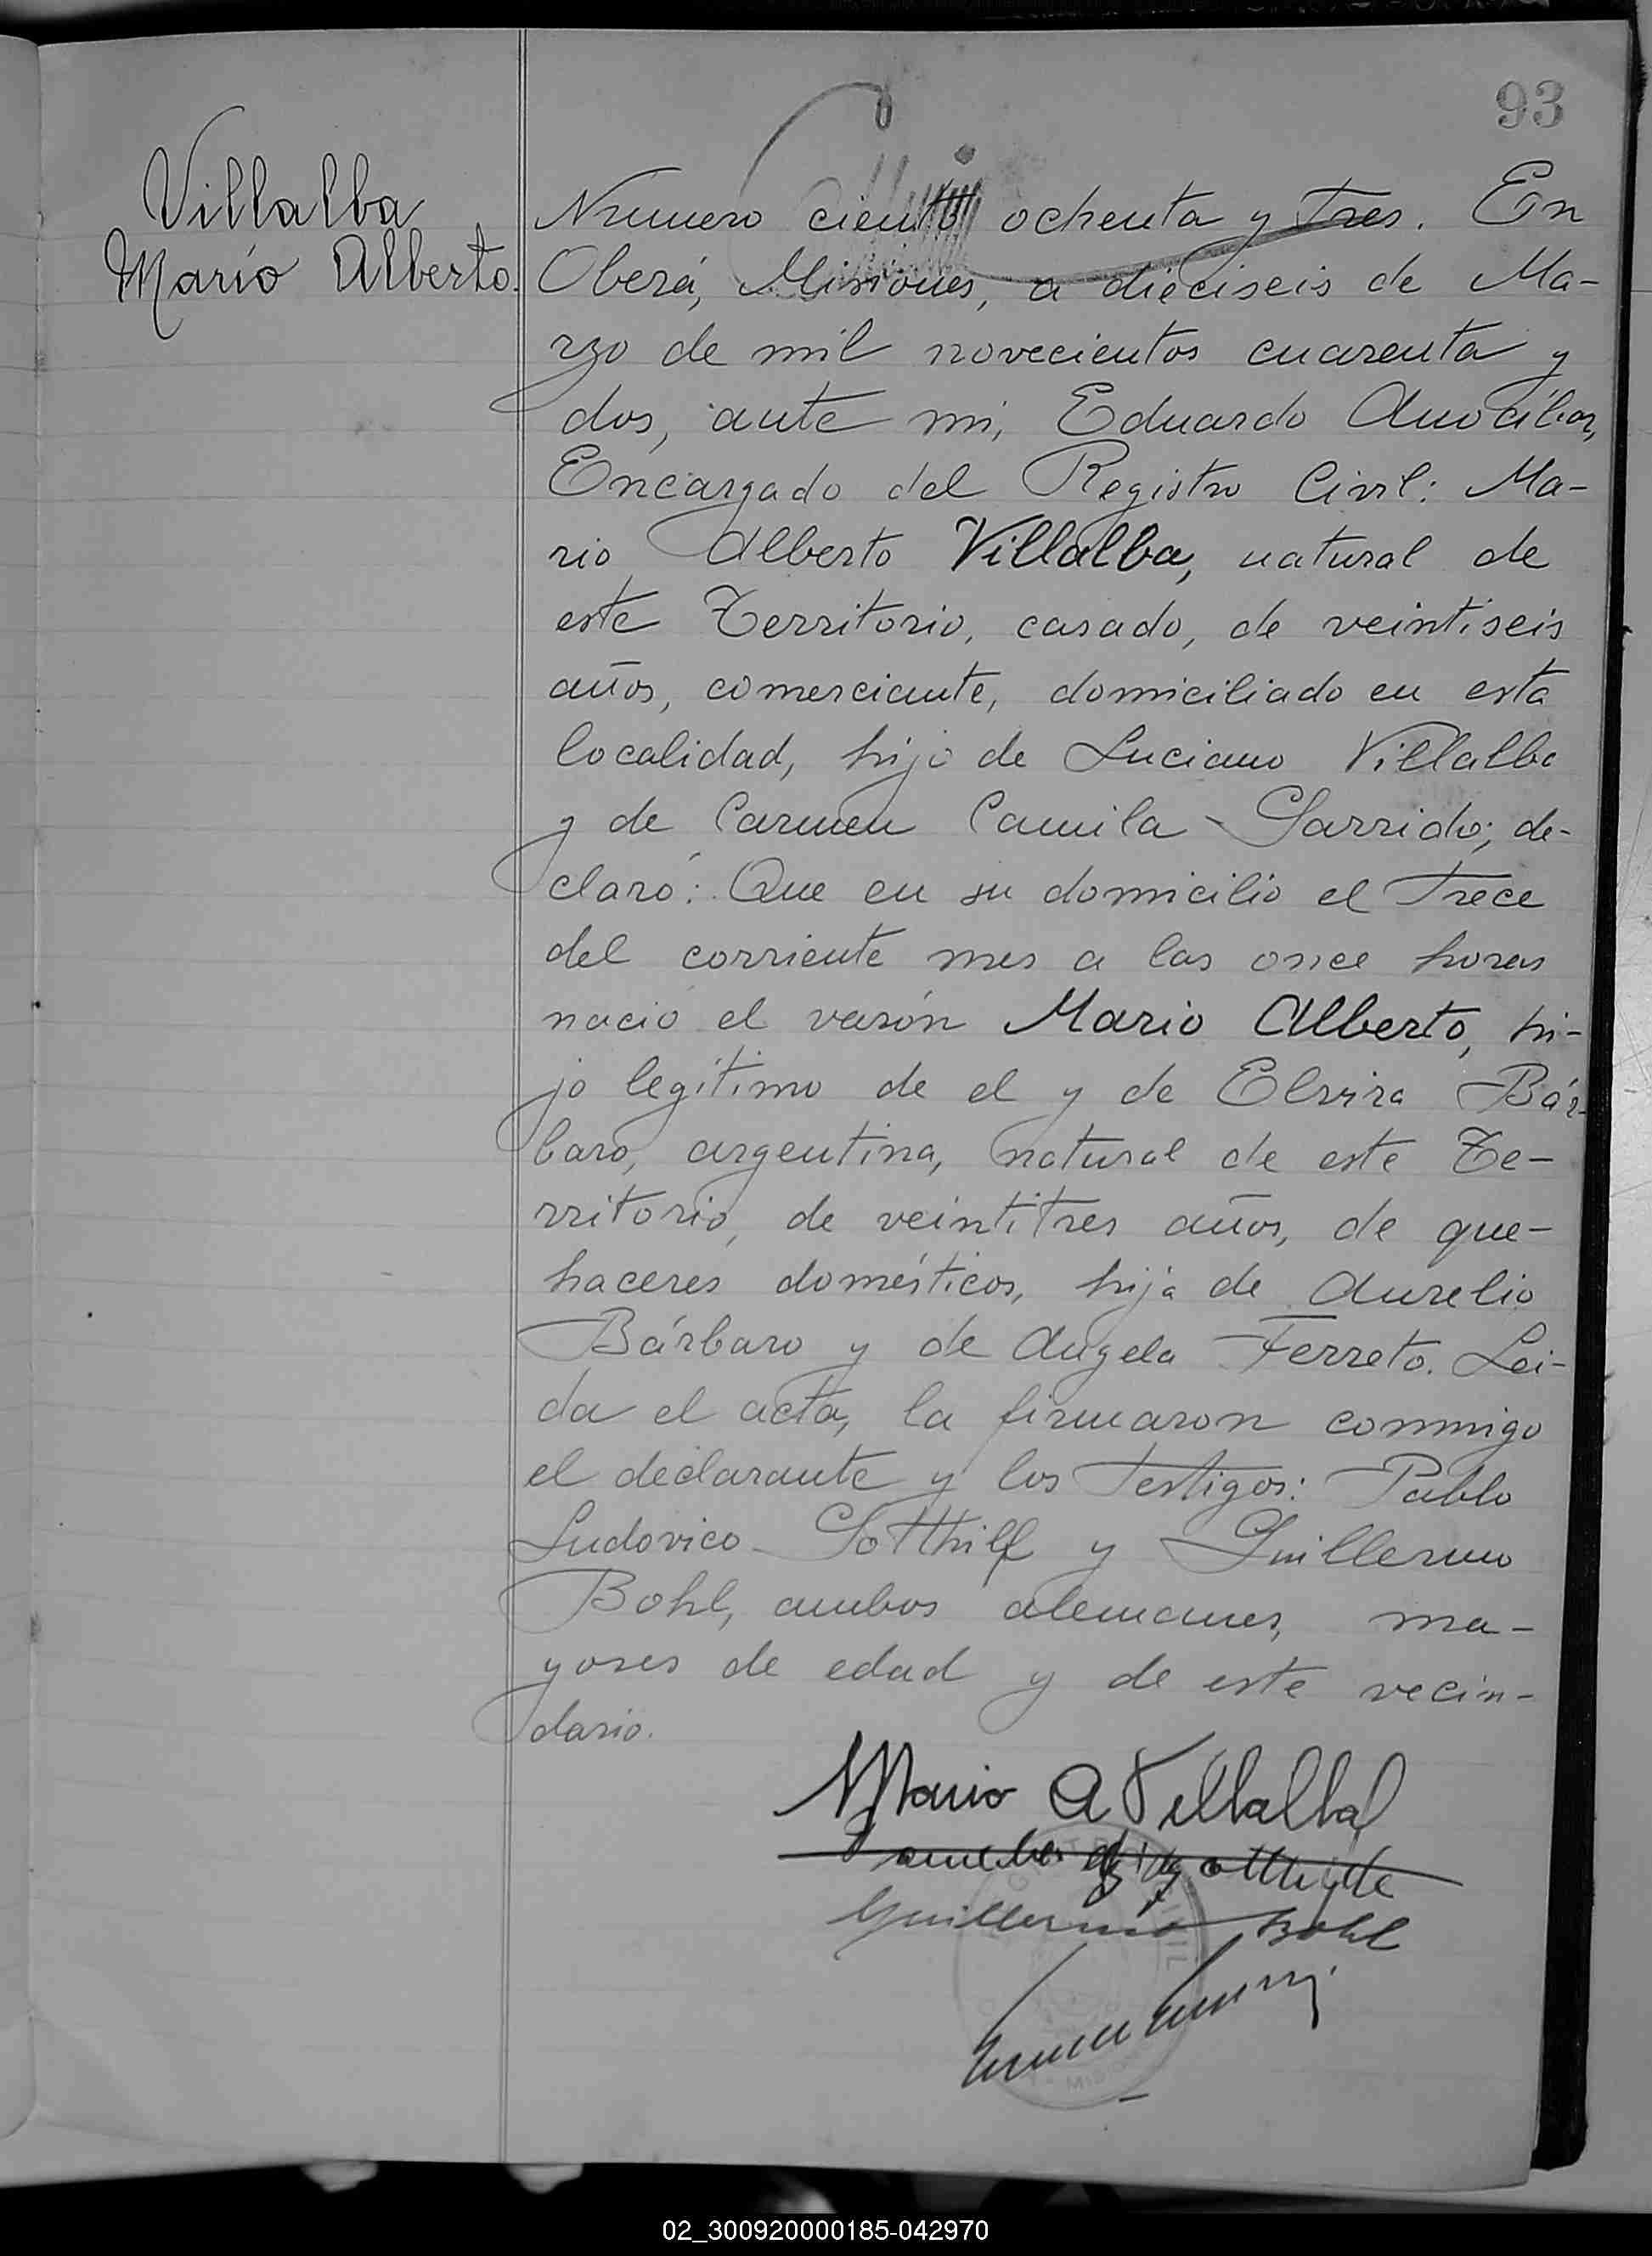 93
Villalba
Mario Alberto.
Numero ciento ochenta y tres. En
Oberá, Misiones, a dieciseis de Ma-
rzo de mil novecientos cuarenta y
dos, ante mi, Eduardo
Encargado del Registro Civil: Ma-
rio Alberto Villalba, natural de
este Territorio, casado, de veintiseis
años, comerciante, domiciliado en esta
localidad, hijo de Luciano Villalba
y de Carmen Camila Garrido; de-
claró: Que en su domicilio el trece
del corriente mes a las once horas
nació el varón Mario Alberto, hi-
jo legítimo de el y de Elvira Bár-
baro, argentina, natural de este Te-
rritorio, de veintitres años, de que-
haceres domésticos, hija de Aurelio
Bárbaro y de Angela Ferreto. Lei-
da el acta, la firmaron conmigo
el declarante y los testigos: Pablo
Ludovico Gotthilf y Guillermo
Bohl, ambos alemanes, ma-
yores de edad y de este vecin-
dario.
Mario A Villalba
Guillermo Bohl
02_300920000185-042970